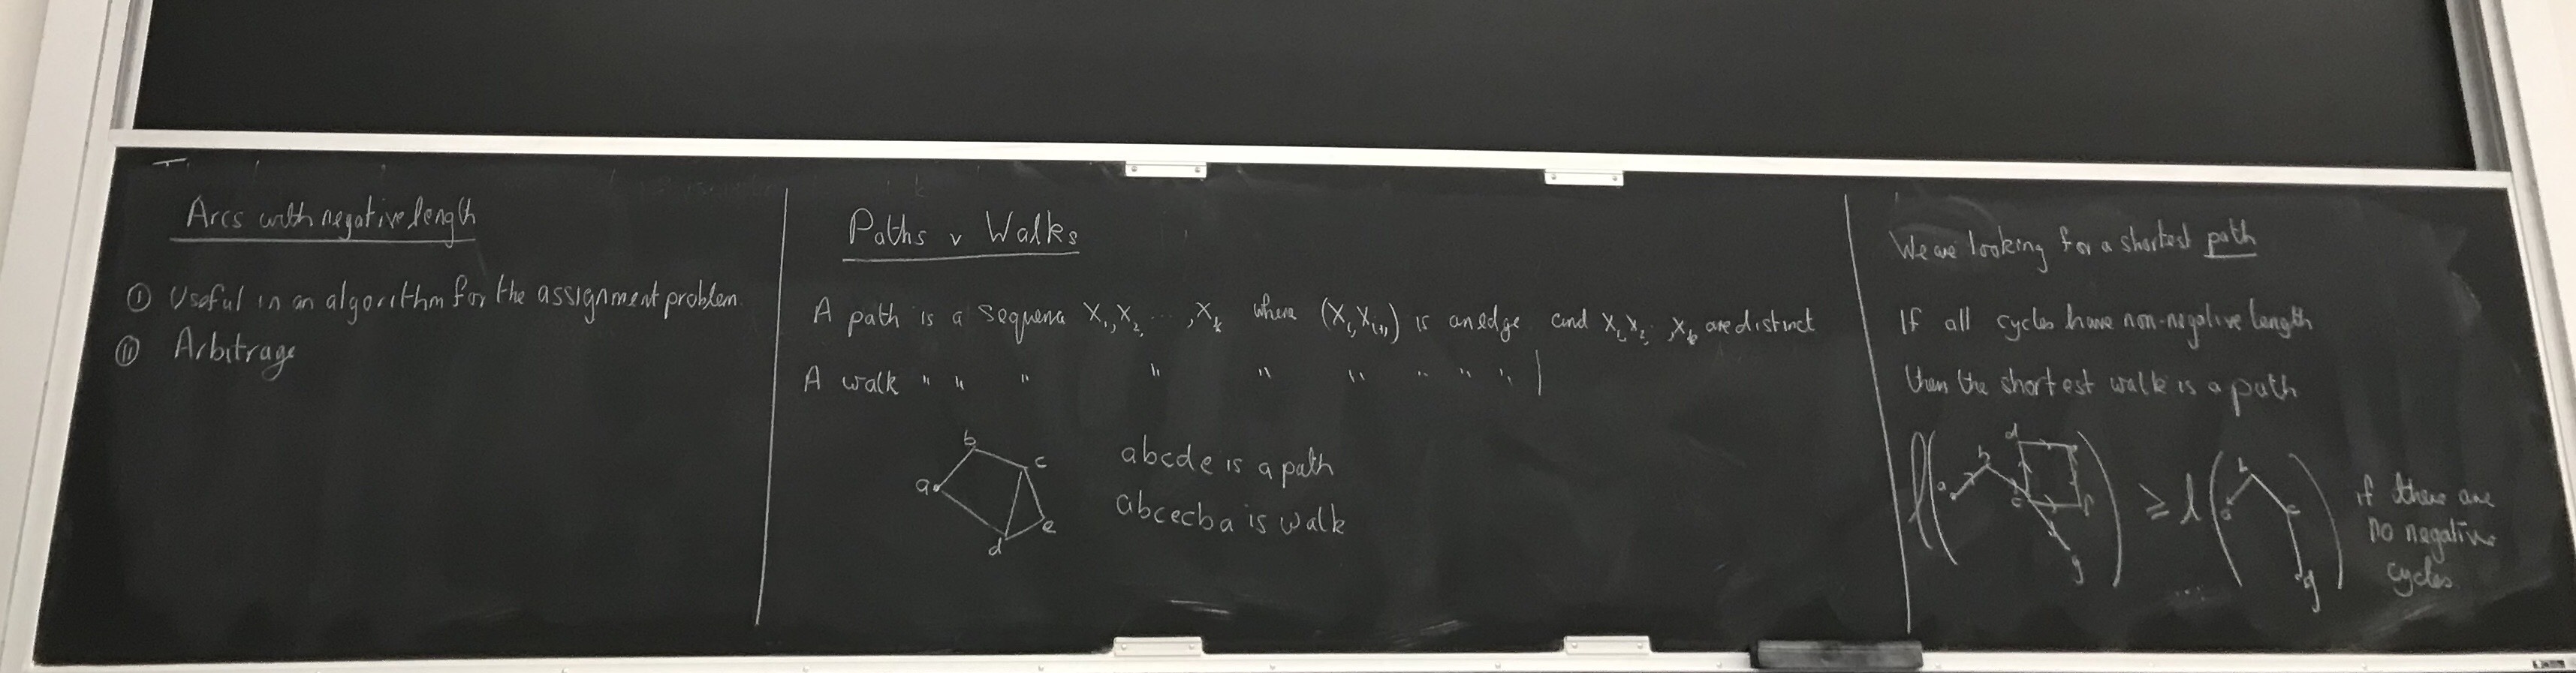 Arcs with negative length
(I) Useful in an algorithm for the assignment problem
(II) Arbitrage
Paths v Walks
A path is a sequence X₁, X₂, ..., Xₖ where (Xᵢ, Xᵢ₊₁) is an edge and X₁, X₂, ..., Xₖ are distinct
A walk " " " " " " " " " |
b
c
a
e
d
abcde is a path
abcecba is walk
We are looking for a shortest path
If all cycles have non-negative length
then the shortest walk is a path
l( a b c d e f g ) ≥ l( a b c g ) if there are
no negative
cycles